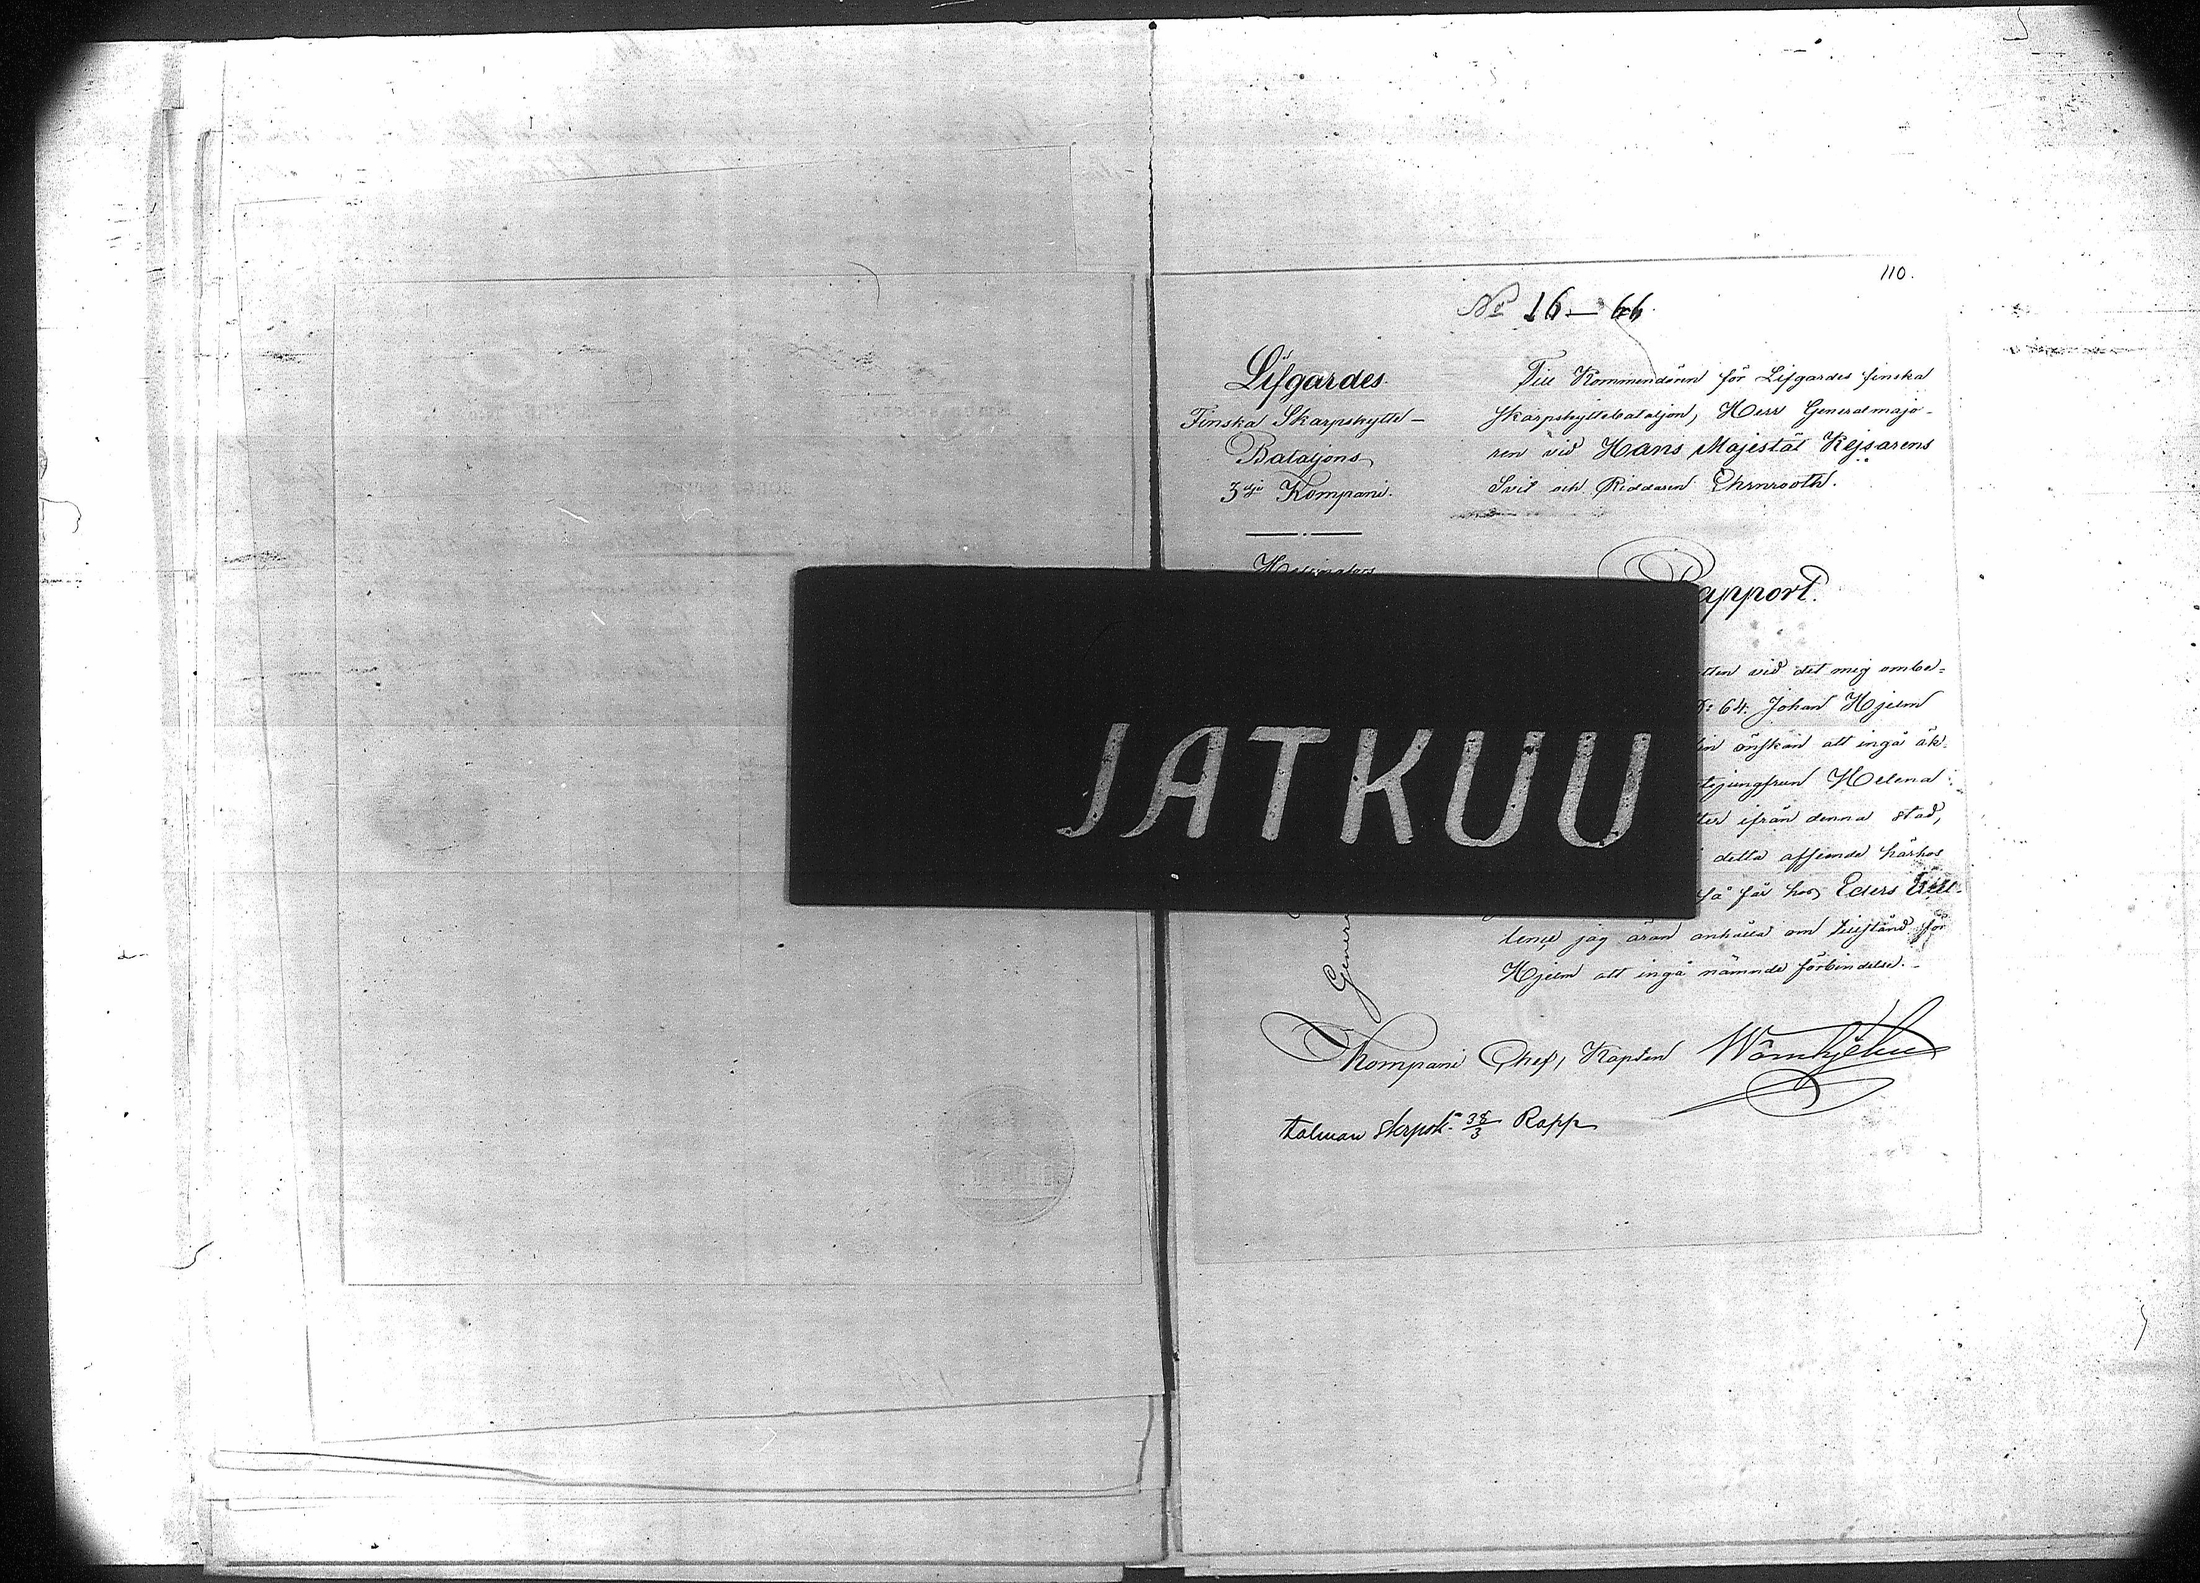 110.
No 16–66.
Lifgardes
Finska Skarpskytte-
Bataljons
3dje Kompani.
Till Kommendören för Lifgardes finska
Skarpskyttebataljon, Herr Generalmajo-
ren vid Hans Majestät Kejsarens
Svit och Riddaren Ehrnrooth.
Rapport.
vid det mig ombe-
64. Johan Hjelm
önskan att ingå äk-
Helena
ifrån denna stad,
detta afseende härhos
få får hos Eders
jag äran anhålla om tillstånd för
Hjelm att ingå nämnde förbindelse.
Kompani Chef, Kapten
38/3 Rapp
JATKUU